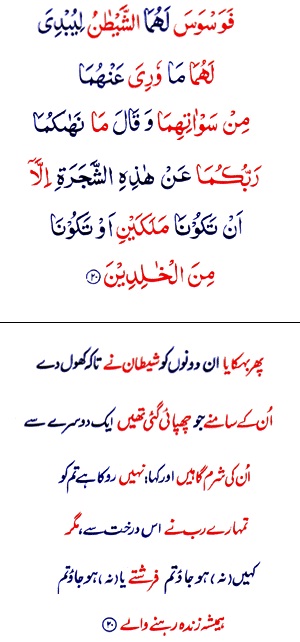 فَوَسْوَسَ لَهُمَا الشَّيْطٰنُ لِيُبْدِىَ
لَهُمَا مَا وٗرِىَ عَنْهُمَا
مِنْ سَوْاٰتِهِمَا وَ قَالَ مَا نَهٰىكُمَا
رَبُّكُمَا عَنْ هٰذِهِ الشَّجَرَةِ اِلَّاۤ
اَنْ تَكُوْنَا مَلَكَيْنِ اَوْ تَكُوْنَا
مِنَ الْخٰلِدِيْنَ ۲۰
پھر بہکایا ان دونوں کو شیطان نے تاکہ کھول دے
اُن کے سامنے جو چھپائی گئی تھیں ایک دوسرے سے
اُن کی شرم گاہیں اور کہا: نہیں روکا ہے تم کو
تمہارے رب نے اس درخت سے، مگر
کہیں (نہ) ہو جاؤ تم فرشتے یا (نہ) ہو جاؤ تم
ہمیشہ زندہ رہنے والے ۲۰